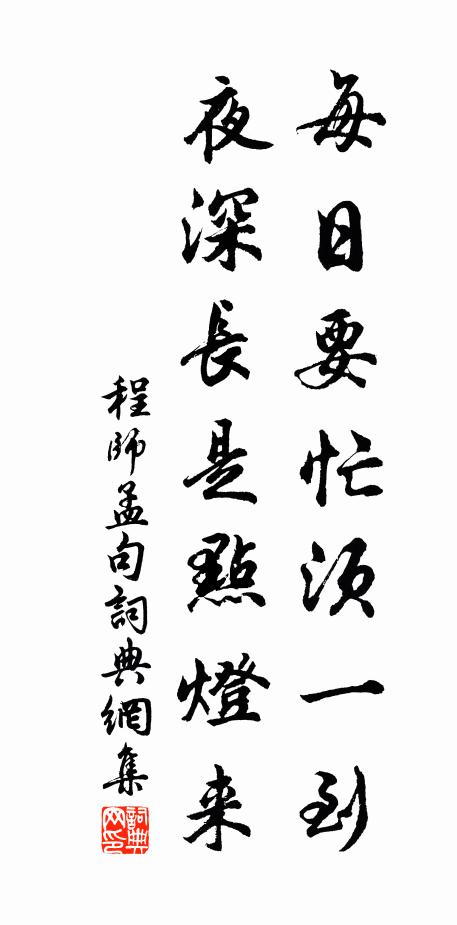 每日要忙須一到
夜深長是點燈来
程師孟句詞典網集
詞典网印